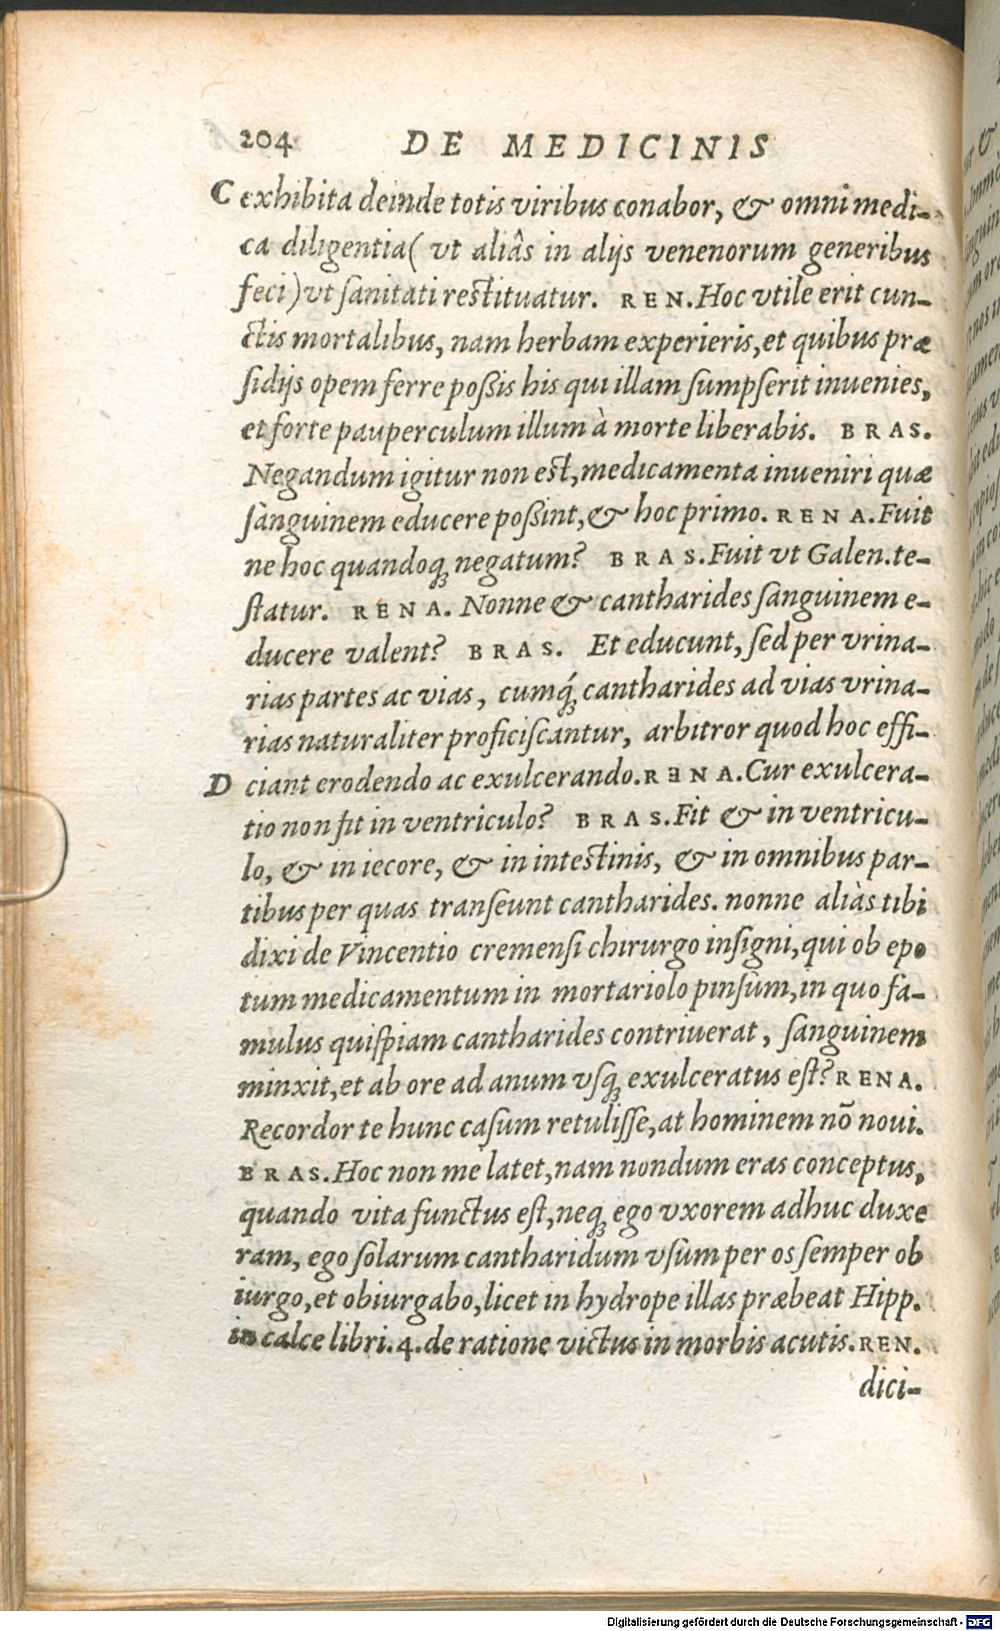 204 DE MEDICINIS
C exhibita deinde totis viribus conabor, & omni medi-
ca diligentia( vt aliâs in alijs venenorum generibus
feci) vt ſanitati reſtituatur. REN. Hoc vtile erit cun-
ctis mortalibus, nam herbam experieris, et quibus præ
ſidijs opem ferre poßis his qui illam ſumpſerit inuenies,
et forte pauperculum illum à morte liberabis. BRAS.
Negandum igitur non eſt, medicamenta inueniri quæ
ſanguinem educere poßint, & hoc primo. RENA. Fuit
ne hoc quandoq́ negatum? BRAS. Fuit vt Galen. te-
ſtatur. RENA. Nonne & cantharides ſanguinem e-
ducere valent? BRAS. Et educunt, ſed per vrina-
rias partes ac vias, cumq́ cantharides ad vias vrina-
rias naturaliter proficiſcantur, arbitror quod hoc effi-
D ciant erodendo ac exulcerando. RENA. Cur exulcera-
tio non fit in ventriculo? BRAS. Fit & in ventricu-
lo, & in iecore, & in inteſtinis, & in omnibus par-
tibus per quas tranſeunt cantharides. nonne aliàs tibi
dixi de Vincentio cremenſi chirurgo inſigni, qui ob epo
tum medicamentum in mortariolo pinſum, in quo fa-
mulus quiſpiam cantharides contriuerat, ſanguinem
minxit, et ab ore ad anum vſq́ exulceratus eſt? RENA.
Recordor te hunc caſum retuliſſe, at hominem nō noui.
BRAS. Hoc non me latet, nam nondum eras conceptus,
quando vita functus eſt, neq́ ego vxorem adhuc duxe
ram, ego ſolarum cantharidum vſum per os ſemper ob
iurgo, et obiurgabo, licet in hydrope illas præbeat Hipp.
in calce libri. 4. de ratione victus in morbis acutis. REN.
dici-
Digitalisierung gefördert durch die Deutsche Forschungsgemeinschaft - DFG